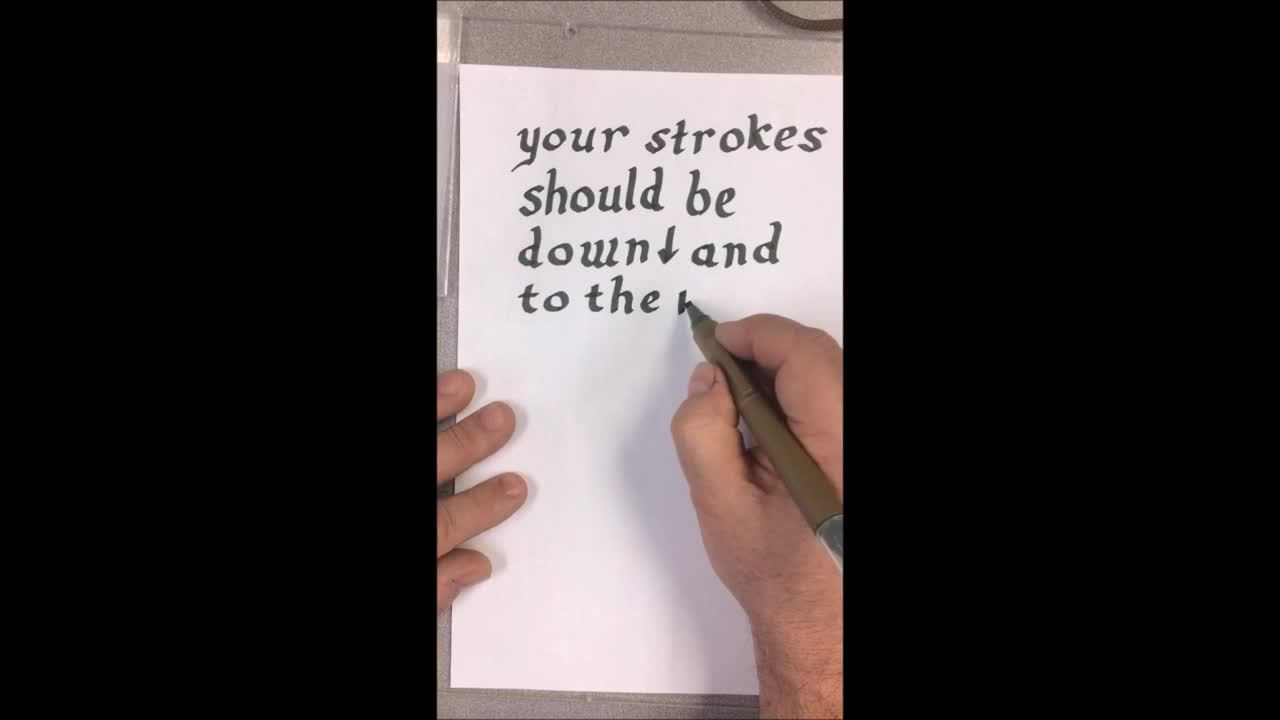 your strokes
should be
down↓and
to the